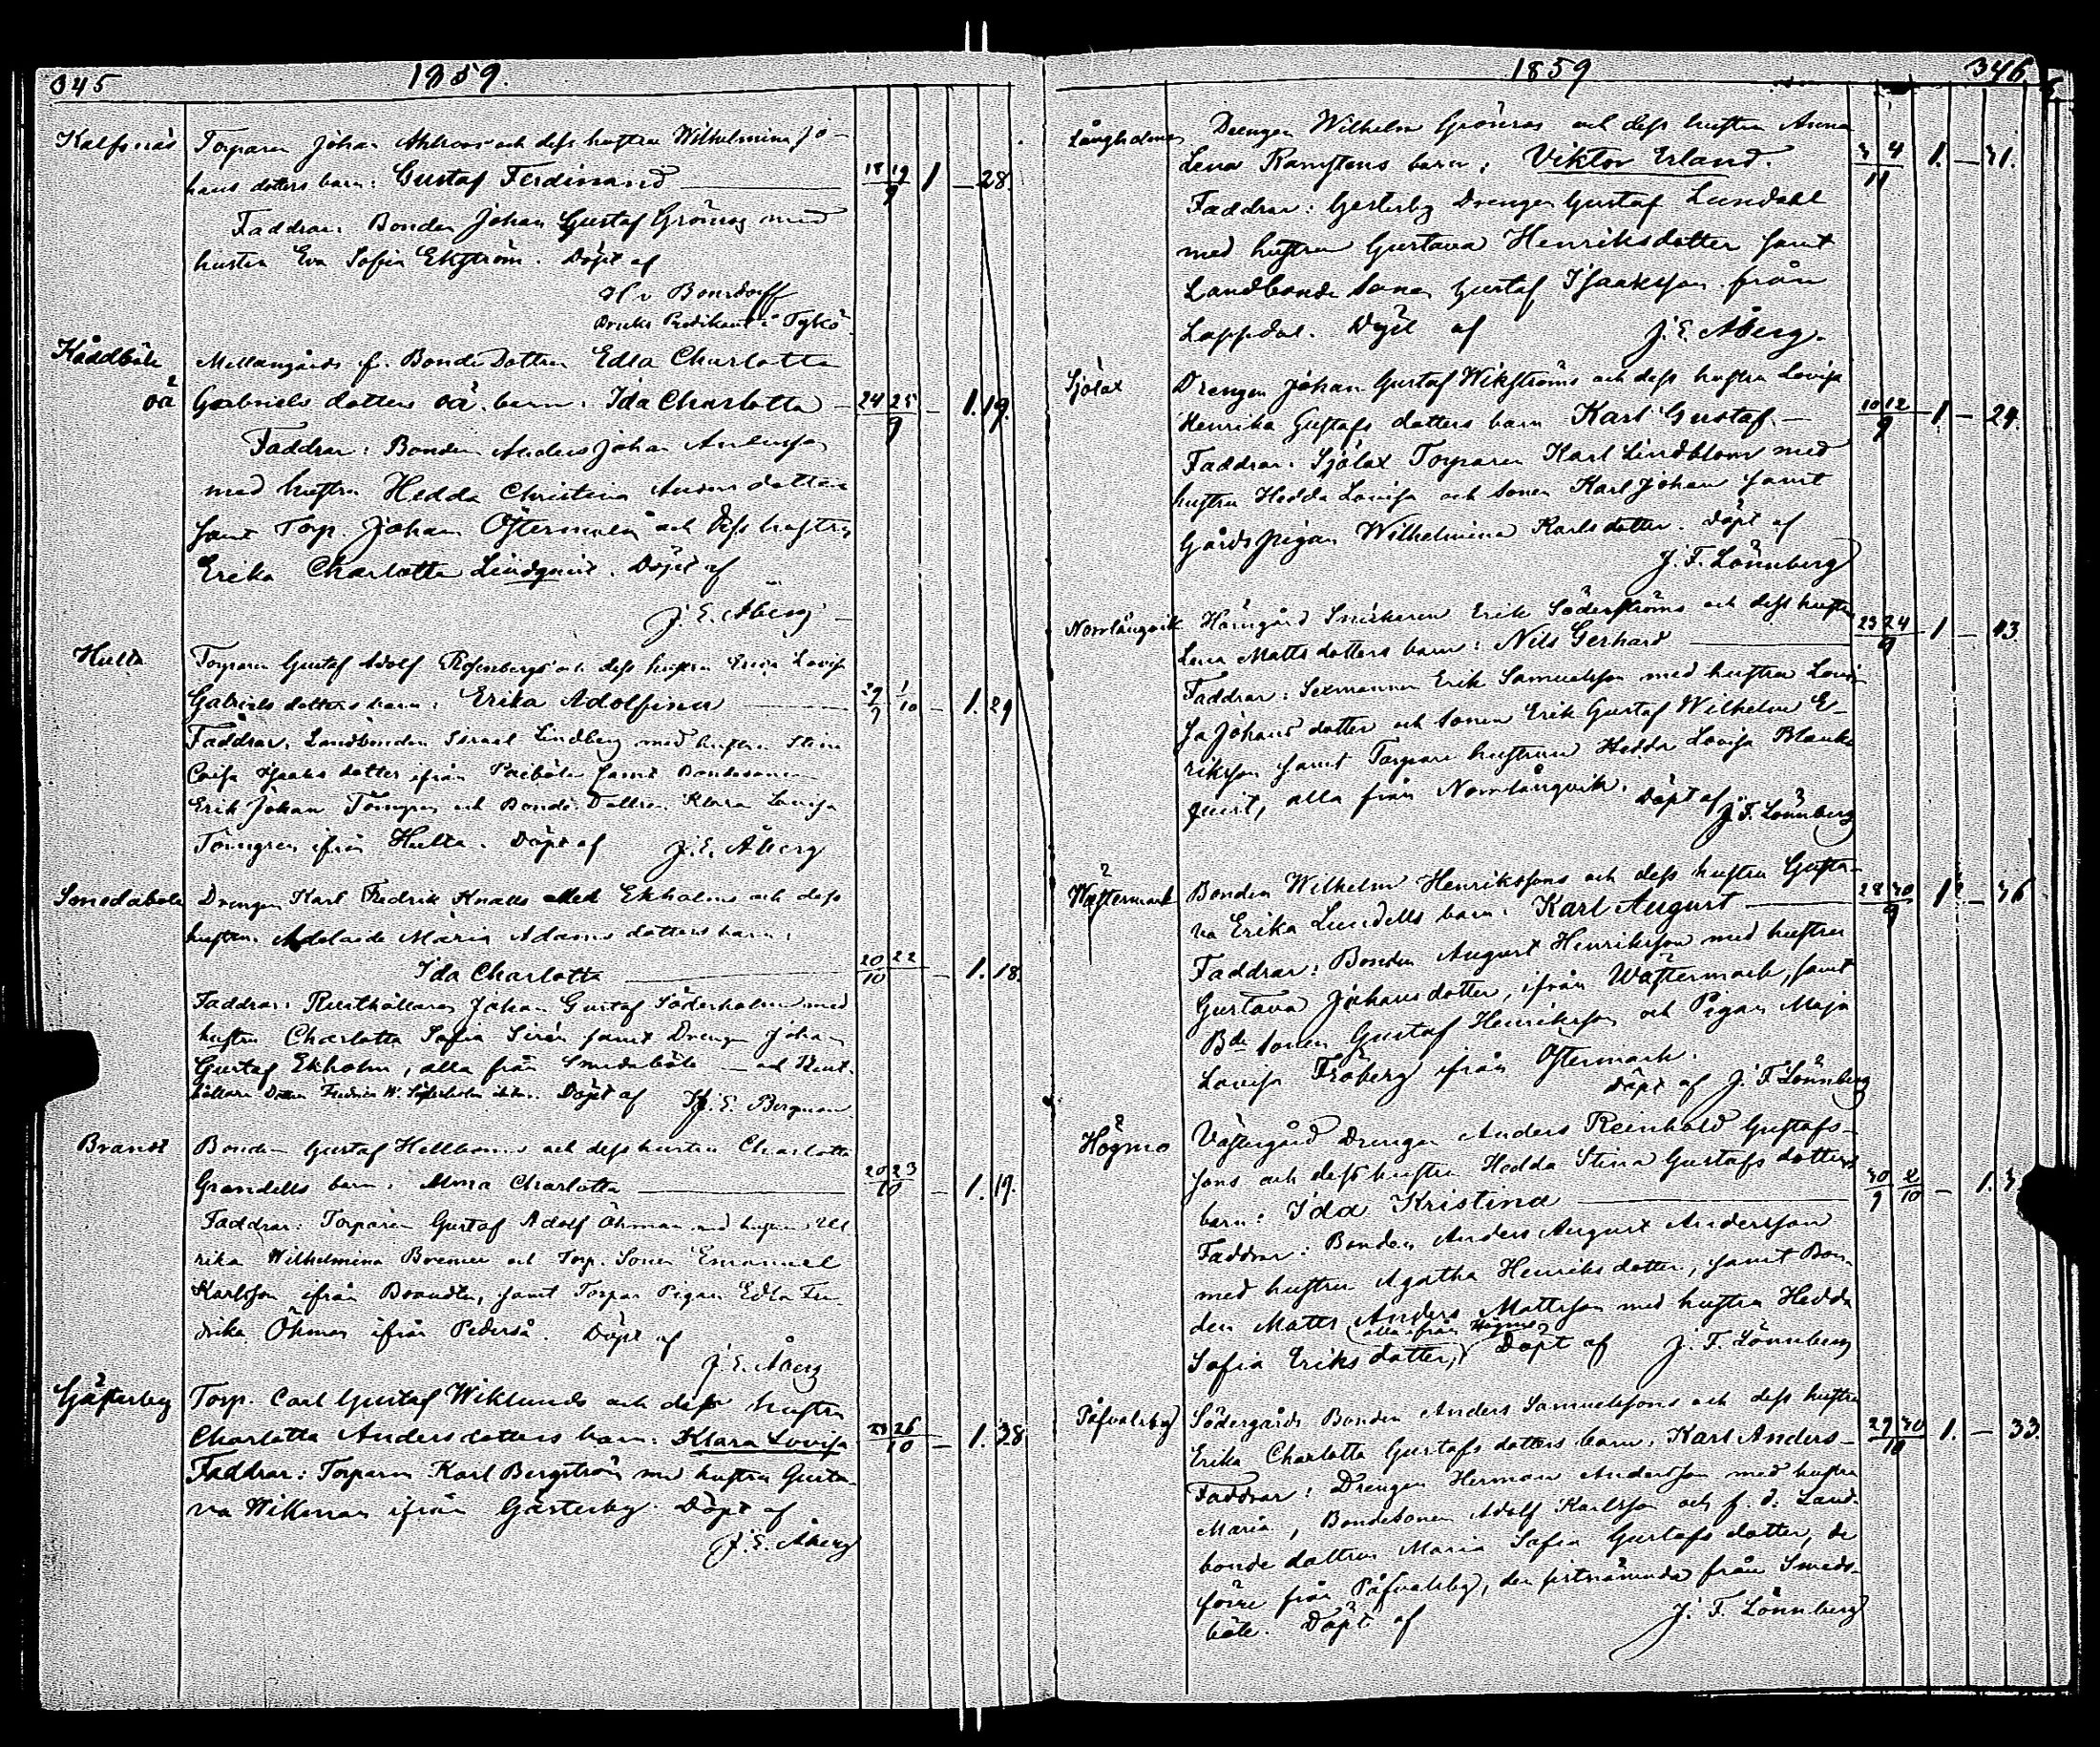 345
1859.
Kalfsnäs
Torparen Johan Ahlroos och dess hustru Wilhelmina Jo-
hans dotters barn: Gustaf Ferdinand
18 19
9
1 — 28.
Faddrar: Bonden Johan Gustaf Grönroos med
hustru Eva Sofia Ekström. Döpt af
H v Bonsdorff
Bruks Predikant i Tykö
Kåddböle
Mellangårds f. Bonde Dottren Edla Charlotta
oä
Gabriels dotters oä. barn: Ida Charlotta
24 25
9
— 1. 19.
Faddrar: Bonden Anders Johan Andersson
med hustru Hedda Christina Anders dotter
samt Torp. Johan Östermalm och dess hustru
Erika Charlotta Lindqvist. Döpt af
J. E. Åberg
Hulta
Torparen Gustaf Adolf Rosenbergs och dess hustru Lovisa
Gabriels dotters barn: Erika Adolfina
29 1
9 10
— 1. 29
Faddrar: Landbonden Israel Lindberg med hustru Stina
Caisa Isaaks dotter ifrån samt Bondesonen
Erik Johan Törngren och Bonde Dottren Klara Lovisa
Törngren ifrån Hulta. Döpt af J. E. Åberg
Smedaböle
Drengen Karl Fredrik Ekholms och dess
hustru Adelaide Maria Adams dotters barn:
Ida Charlotta
20 22
10
— 1. 18.
Faddrar: Rusthållaren Johan Gustaf Söderholm med
hustru Charlotta Sofia Sirén samt Drengen Johan
Gustaf Ekholm, alla från Smedaböle — och Rust-
hållare Dottren Fredrica W. Söderholm Döpt af E. Bergman
Brandt
Bonden Gustaf Hellboms och dess hustru Charlotta
Grandells barn: Alma Charlotta
20 23
10
— 1. 19.
Faddrar: Torparen Gustaf Adolf Öhman med hustru Ul
rika Wilhelmina Bremer och Torp. Sonen Emanuel
Karlsson ifrån Brandtu, samt Torpar Pigan Edla Fre-
drika Öhman ifrån Pederså. Döpt af
J. E. Åberg
Gästerby
Torp. Carl Gustaf Wiklunds och dess hustru
Charlotta Anders dotters barn: Klara Lovisa
23 26
10
— 1. 38
Faddrar: Torparen Karl Bergström med hustru Gusta-
va Wikman ifrån Gästerby. Döpt af
J. E. Åberg
1859
346
Långholmen
Drengen Wilhelm Grönroos och dess hustru Anna
Lena Ramstens barn: Viktor Erland.
3 4
11
1. — 31.
Faddrar: Gesterby Drengen Gustaf Lundahl
med hustru Gustava Henriksdotter samt
Landbonde Sonen Gustaf Isaaksson från
Lappdal. Döpt af J. E. Åberg.
Sjölax
Drengen Johan Gustaf Wikströms och dess hustru Lovisa
Henrika Gustafs dotters barn Karl Gustaf.
10 12
9
1 — 24.
Faddrar: Sjölax Torparen Karl Lindblom med
hustru Hedda Lovisa och Sonen Karl Johan samt
Gårds pigan Wilhelmina Karlsdotter. Döpt af
J. F. Lönnberg
Norrlångvik
Härngård Snickaren Erik Söderströms och dess hustru
Lena Matts dotters barn: Nils Gerhard
23 24
9
1 — 43
Faddrar: Sexmannen Erik Samuelsson med hustru Lovi-
sa Johans dotter och Sonen Erik Gustaf Wilhelm E-
riksson samt Torpare hustrun Hedda Lovisa Blank-
quist, alla från Norrlångvik. Döpt af J. F. Lönnberg
Wästermark
Bonden Wilhelm Henrikssons och dess hustru Gusta-
va Erika Lundells barn: Karl August
28 30
9
1 — 36
Faddrar: Bonden August Henriksson med hustru
Gustava Johans dotter, ifrån Wästermark, samt
Bde Sonen Gustaf Henriksson och Pigan Maja
Lovisa Fröberg ifrån Östermark.
Döpt af J. F. Lönnberg
Högmo
Västergård Drengen Anders Reinhold Gustafs-
sons och dess hustru Hedda Stina Gustafs dotters
barn: Ida Kristina
30 2
9 10
— 1.
Faddrar: Bonden Anders August Andersson
med hustru Agatha Henriks dotter, samt Bon-
den Matts Anders Mattsson med hustru Hedda
Sofia Eriks dotter, (alla ifrån Högmo) Döpt af J. F. Lönnberg
Påfvalsby
Södergårds Bonden Anders Samuelssons och dess hustru
Erika Charlotta Gustafs dotters barn: Karl Anders
29 30
10
1. — 33.
Faddrar: Drengen Herman Andersson med hustru
Maria, Bondesonen Adolf Karlsson och f. d. Land-
bonde dottren Maria Sofia Gustafs dotter, de
förre från Påfvalsby, den sistnämnda från Smeds-
böle. Döpt af J. F. Lönnberg